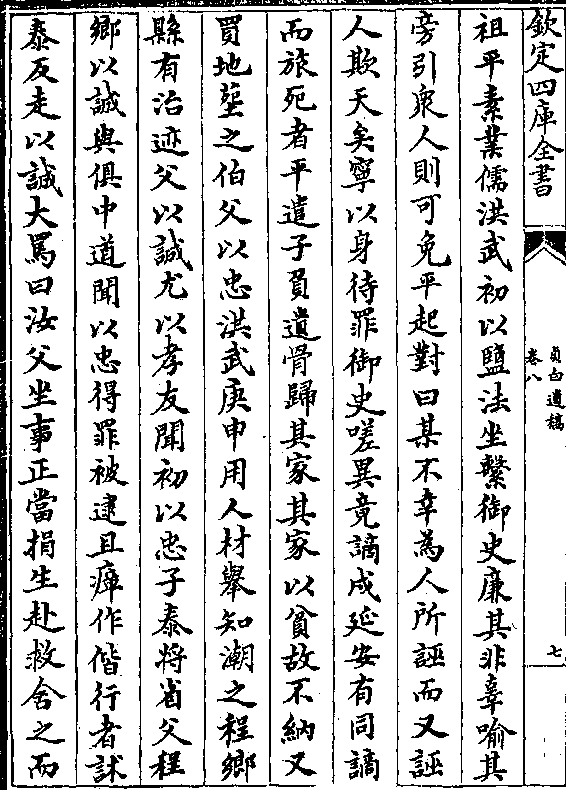 欽定四庫全書
貞白遺稿
卷八
七
祖平素業儒洪武初以鹽法坐繫御史廉其非辜喻其
旁引衆人則可免平起對曰某不幸為人所誣而又誣
人欺天矣寧以身待罪御史嗟異竟謫戍延安有同謫
而旅死者平遣子負遺骨歸其家其家以貧故不納又
買地塟之伯父以忠洪武庚申用人材舉知潮之程鄉
縣有治迹父以誠尤以孝友聞初以忠子泰將省父程
鄉以誠與俱中道聞以忠得罪被逮且瘴作偕行者訹
泰反走以誠大罵曰汝父坐事正當捐生赴救舍之而